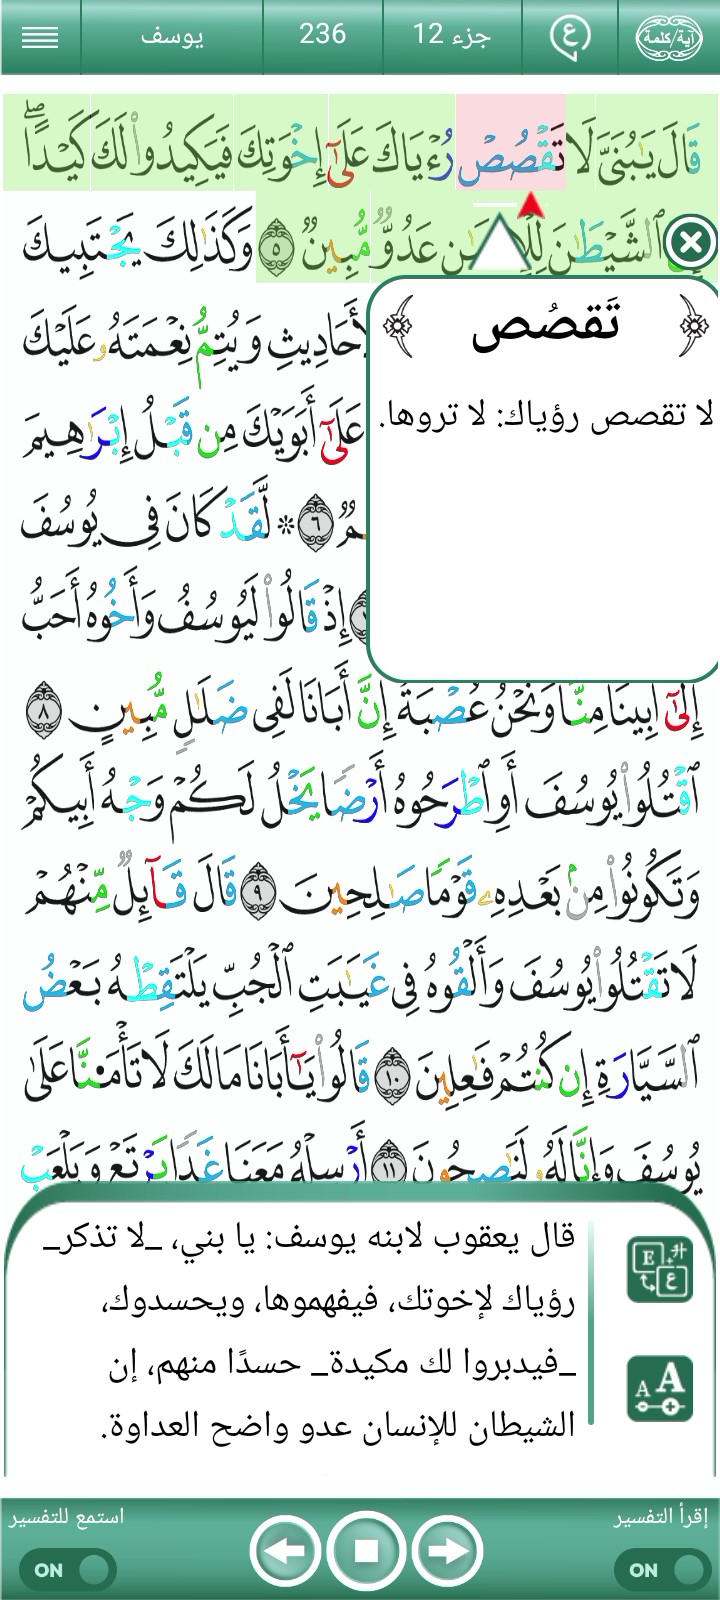 آية/كلمة
ع
جزء 12
236
يوسف
قَالَ يَٰبُنَىَّ لَا تَقْصُصْ رُءْيَاكَ عَلَىٰٓ إِخْوَتِكَ فَيَكِيدُوا۟ لَكَ كَيْدًا ۖ
ٱلشَّيْطَٰنَ عَدُوٌّ مُّبِينٌ ٥ وَكَذَٰلِكَ يَجْتَبِيكَ
تَقصُص
لا تقصص رؤياك: لا تروها.
وَيُتِمُّ نِعْمَتَهُۥ عَلَيْكَ
عَلَىٰٓ أَبَوَيْكَ مِن قَبْلُ إِبْرَٰهِيمَ
٦ ۞ لَّقَدْ كَانَ فِى يُوسُفَ
إِذْ قَالُوا۟ لَيُوسُفُ وَأَخُوهُ أَحَبُّ
إِلَىٰٓ أَبِينَا مِنَّا وَنَحْنُ عُصْبَةٌ إِنَّ أَبَانَا لَفِى ضَلَٰلٍ مُّبِينٍ ٨
ٱقْتُلُوا۟ يُوسُفَ أَوِ ٱطْرَحُوهُ أَرْضًا يَخْلُ لَكُمْ وَجْهُ أَبِيكُمْ
وَتَكُونُوا۟ مِنۢ بَعْدِهِۦ قَوْمًا صَٰلِحِينَ ٩ قَالَ قَآئِلٌ مِّنْهُمْ
لَا تَقْتُلُوا۟ يُوسُفَ وَأَلْقُوهُ فِى غَيَٰبَتِ ٱلْجُبِّ يَلْتَقِطْهُ بَعْضُ
ٱلسَّيَّارَةِ إِن كُنتُمْ فَٰعِلِينَ ١٠ قَالُوا۟ يَٰٓأَبَانَا مَا لَكَ لَا تَأْمَ۫نَّا عَلَىٰ
يُوسُفَ وَإِنَّا لَهُۥ لَنَٰصِحُونَ ١١ أَرْسِلْهُ مَعَنَا غَدًا يَرْتَعْ وَيَلْعَبْ
قال يعقوب لابنه يوسف: يا بني، _لا تذكر_
رؤياك لإخوتك، فيفهموها، ويحسدوك،
_فيدبروا لك مكيدة_ حسدًا منهم، إن
الشيطان للإنسان عدو واضح العداوة.
E
ع
A A
إقرأ التفسير
استمع للتفسير
ON
ON